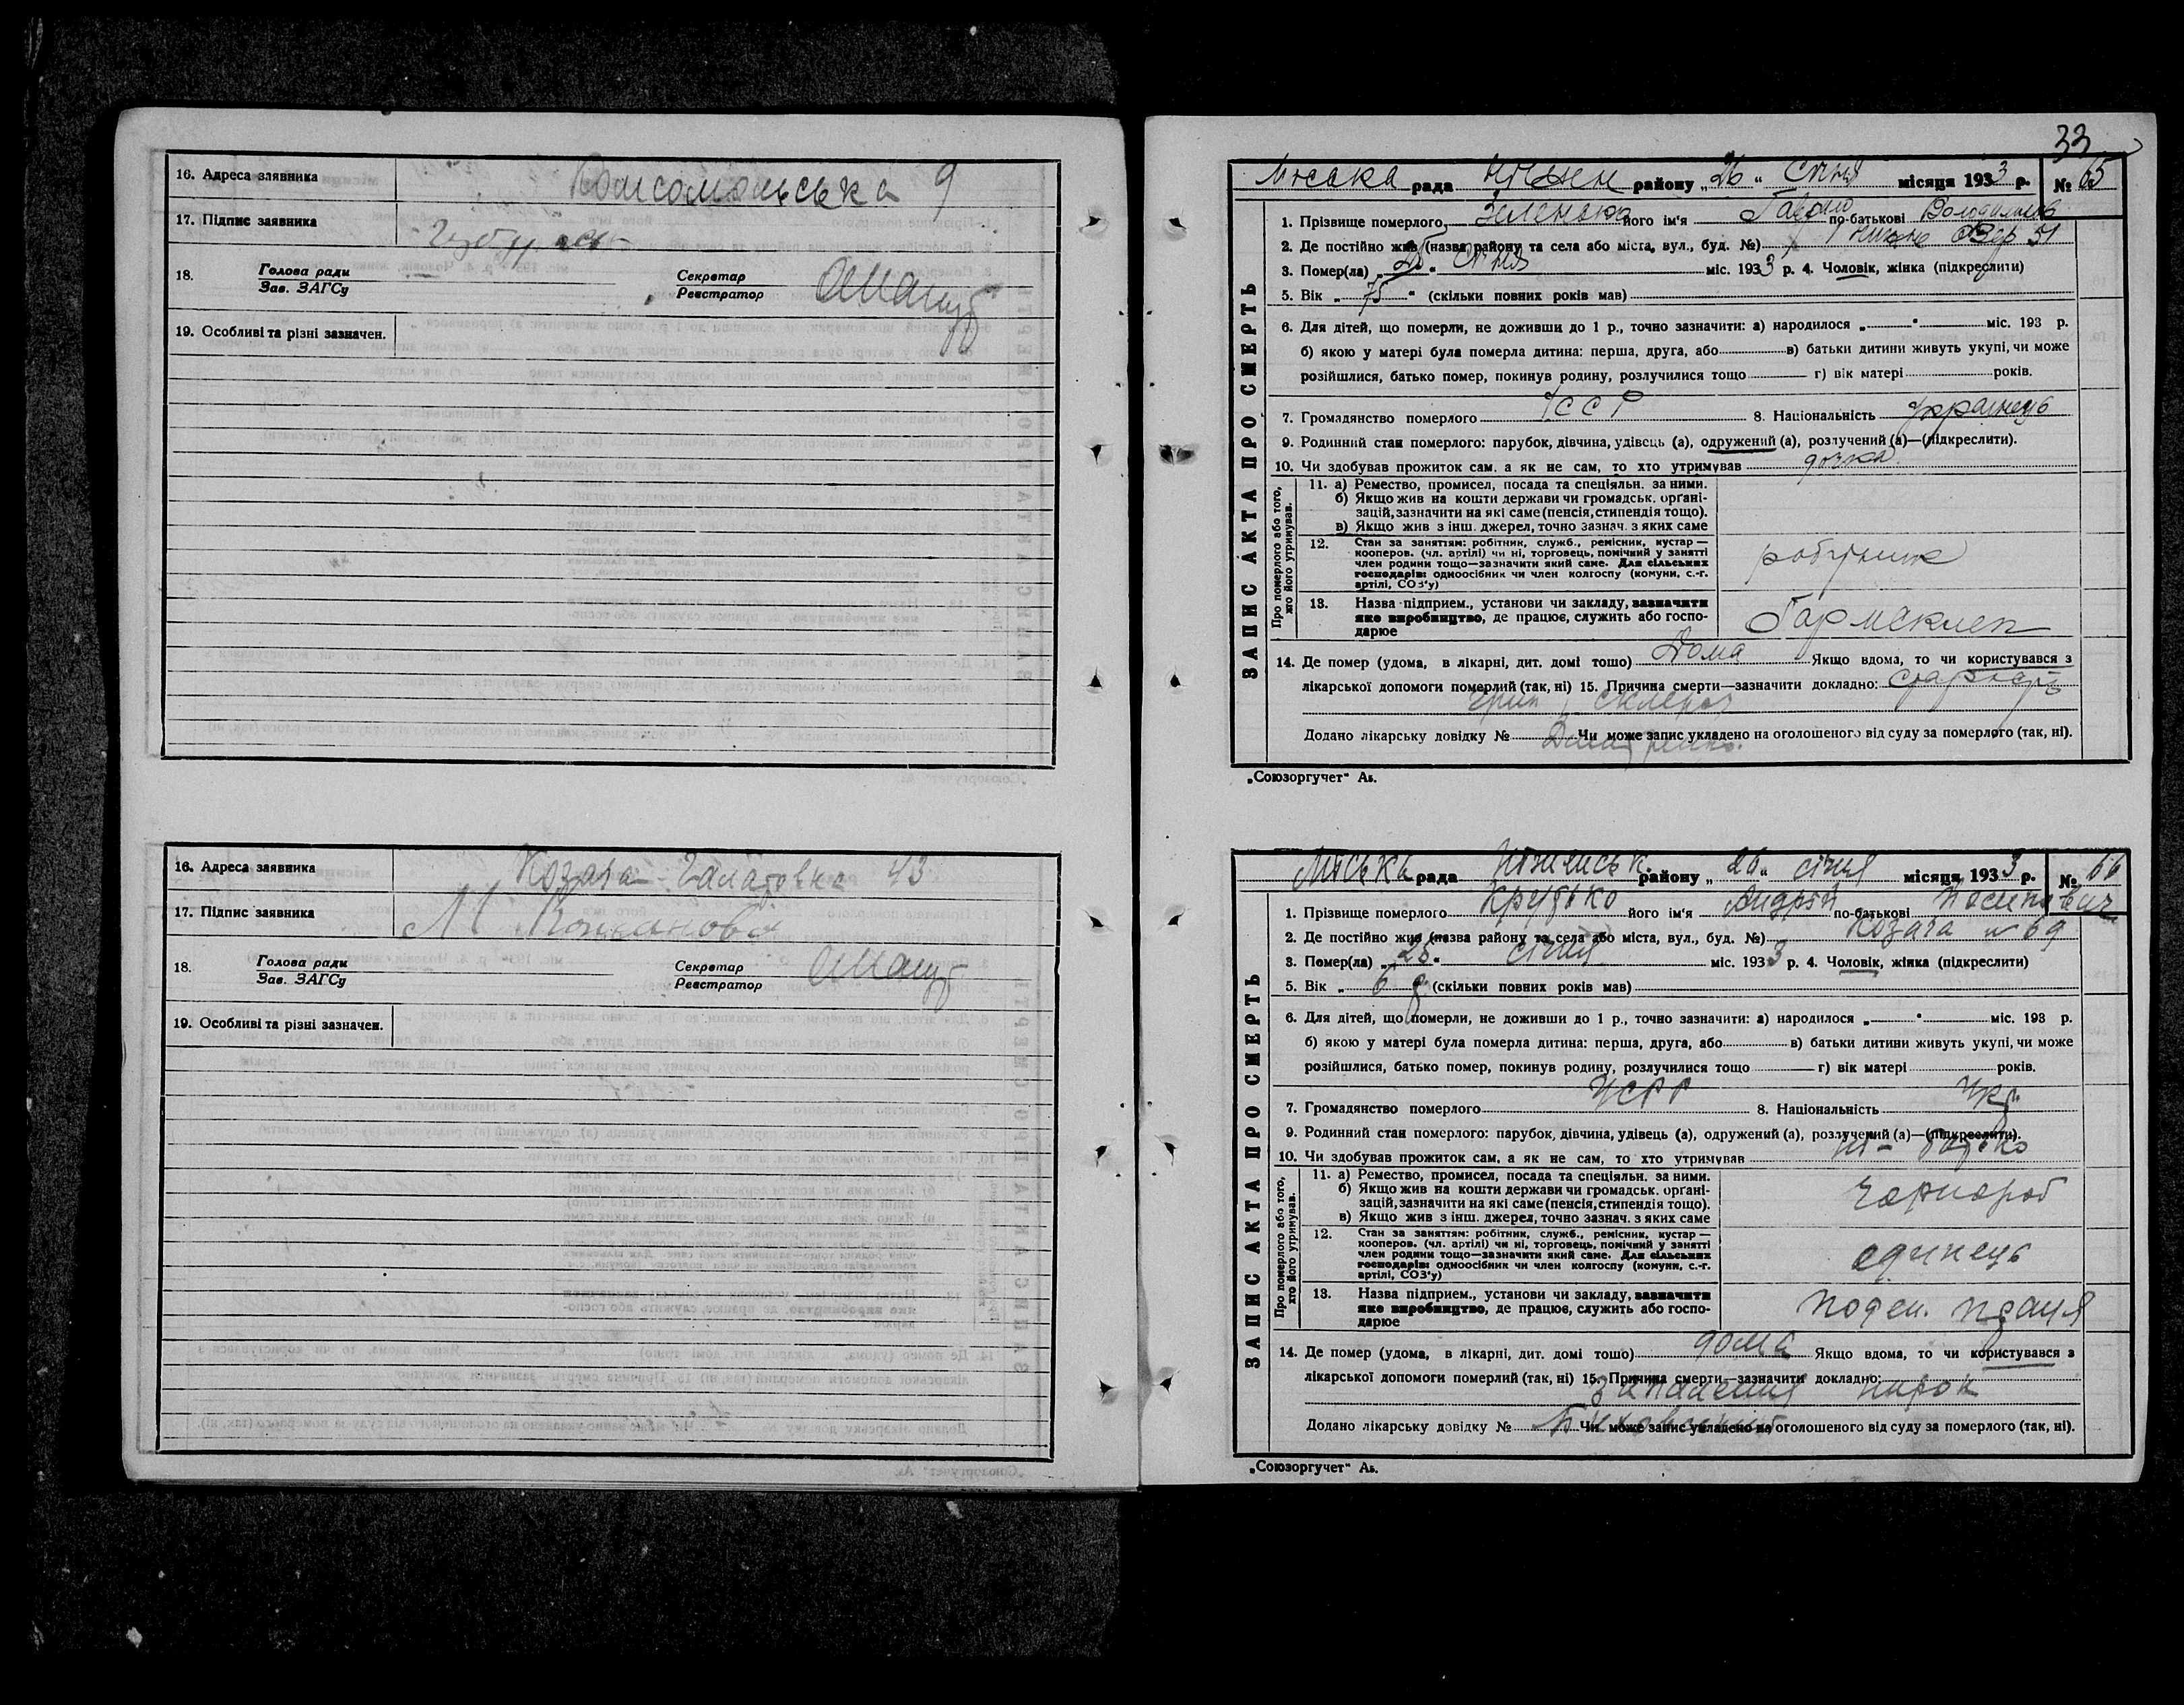 16. Адреса заявника Комсомольська 9
17. Підпис заявника
18. Голова ради Зав. ЗАГСу Секретар Реєстратор
19. Особливі та різні зазначен.
16. Адреса заявника Козача 43
17. Підпис заявника
18. Голова ради Зав. ЗАГСу Секретар Реєстратор
19. Особливі та різні зазначен.
33
Міська рада Ніжен району „26“ Січня місяця 1933 р. № 65
ЗАПИС АКТА ПРО СМЕРТЬ
1. Прізвище померлого Зеленько його ім'я Гаврило по-батькові
2. Де постійно жив (назва району та села або міста, вул., буд. №) 51
3. Помер(ла) „25“ Січня міс. 1933 р. 4. Чоловік, жінка (підкреслити)
5. Вік „75“ (скільки повних років мав)
6. Для дітей, що померли, не доживши до 1 р., точно зазначити: а) народилося „ “ міс. 193 р.
б) якою у матері була померла дитина: перша, друга, або в) батьки дитини живуть укупі, чи може
розійшлися, батько помер, покинув родину, розлучилися тощо г) вік матері років.
7. Громадянство померлого УССР 8. Національність українець
9. Родинний стан померлого: парубок, дівчина, удівець (а), одружений (а), розлучений (а)—(підкреслити).
10. Чи здобував прожиток сам, а як не сам, то хто утримував дочка
Про померлого або того, хто його утримував.
11. а) Ремество, промисел, посада та спеціяльн. за ними.
б) Якщо жив на кошти держави чи громадськ. орґані-
зацій, зазначити на які саме (пенсія, стипендія тощо).
в) Якщо жив з інш. джерел, точно зазнач. з яких саме
12. Стан за заняттям: робітник, служб., ремісник, кустар—
кооперов. (чл. артілі) чи ні, торговець, помічний у занятті
член родини тощо—зазначити який саме. Для сільських
господарів: одноосібник чи член колгоспу (комуни, с.-г.
артілі, СОЗ'у)
робітник
13. Назва підприєм., установи чи закладу, зазначити
яке виробництво, де працює, служить або госпо-
дарює
14. Де помер (удома, в лікарні, дит. домі тощо) Дома Якщо вдома, то чи користувався з
лікарської допомоги померлий (так, ні) 15. Причина смерти—зазначити докладно: старість
грип, склероз
Додано лікарську довідку № Чи може запис укладено на оголошеного від суду за померлого (так, ні).
„Союзоргучет“ Ав.
Міська рада Ніжинськ. району „26“ січня місяця 1933 р. № 66
ЗАПИС АКТА ПРО СМЕРТЬ
1. Прізвище померлого Крутько його ім'я Андрій по-батькові Йосипович
2. Де постійно жив (назва району та села або міста, вул., буд. №) Козача № 69
3. Помер(ла) „25“ січня міс. 1933 р. 4. Чоловік, жінка (підкреслити)
5. Вік „6 р. (скільки повних років мав)
6. Для дітей, що померли, не доживши до 1 р., точно зазначити: а) народилося „ “ міс. 193 р.
б) якою у матері була померла дитина: перша, друга, або в) батьки дитини живуть укупі, чи може
розійшлися, батько помер, покинув родину, розлучилися тощо г) вік матері років.
7. Громадянство померлого УСРР 8. Національність Укр.
9. Родинний стан померлого: парубок, дівчина, удівець (а), одружений (а), розлучений (а)—(підкреслити).
10. Чи здобував прожиток сам, а як не сам, то хто утримував ні - батько
Про померлого або того, хто його утримував.
11. а) Ремество, промисел, посада та спеціяльн. за ними.
б) Якщо жив на кошти держави чи громадськ. орґані-
зацій, зазначити на які саме (пенсія, стипендія тощо).
в) Якщо жив з інш. джерел, точно зазнач. з яких саме
чорнороб
12. Стан за заняттям: робітник, служб., ремісник, кустар—
кооперов. (чл. артілі) чи ні, торговець, помічний у занятті
член родини тощо—зазначити який саме. Для сільських
господарів: одноосібник чи член колгоспу (комуни, с.-г.
артілі, СОЗ'у)
одинець
13. Назва підприєм., установи чи закладу, зазначити
яке виробництво, де працює, служить або госпо-
дарює
поден. праця
14. Де помер (удома, в лікарні, дит. домі тощо) дома Якщо вдома, то чи користувався з
лікарської допомоги померлий (так, ні) 15. Причина смерти—зазначити докладно:
запалення нирок
Додано лікарську довідку № Чи може запис укладено на оголошеного від суду за померлого (так, ні).
„Союзоргучет“ Ав.